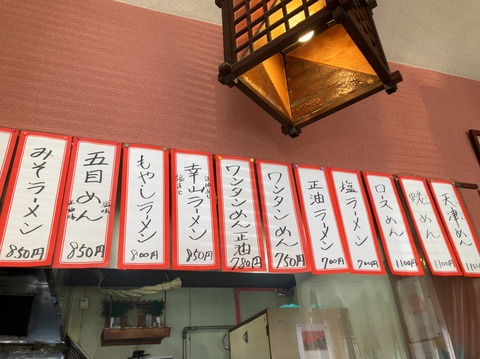 天津めん
1100円
めん
1100円
ロスめん
1100円
塩ラーメン
700円
正油ラーメン
700円
ワンタンめん
750円
ワンタンめん 正油
780円
幸山ラーメン
850円
もやしラーメン
800円
五目めん
塩味
正油味
850円
みそラーメン
850円